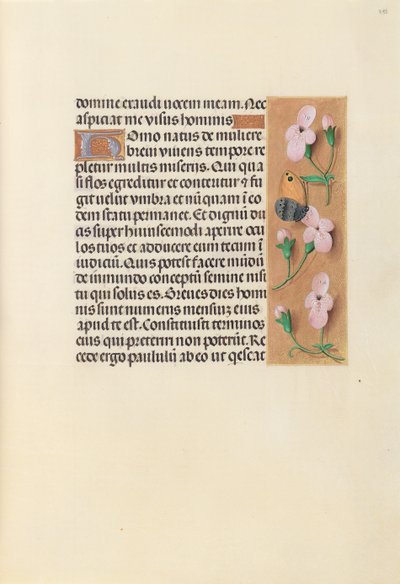 domine exaudi vocem meam. Nec
aspiciat me visus hominis
Homo natus de muliere
brevi vivens tempore re
pletur multis miseriis. Qui qua
si flos egreditur et conteritur ⁊ fu
git velut umbra et nūquam ī eo
dem statu permanet. Et dignū du
cis super huiuscemodi aperire ocu
los tuos et adducere eum tecum ī
iudiciū. Quis potest facere mūdū
de inmundo conceptū semine nisi
tu qui solus es. Breves dies homi
nis sunt numerus mensiuz eius
apud te est. Constituisti terminos
eius qui preteriri non poterūt. Re
cede ergo paululū ab eo ut qescat